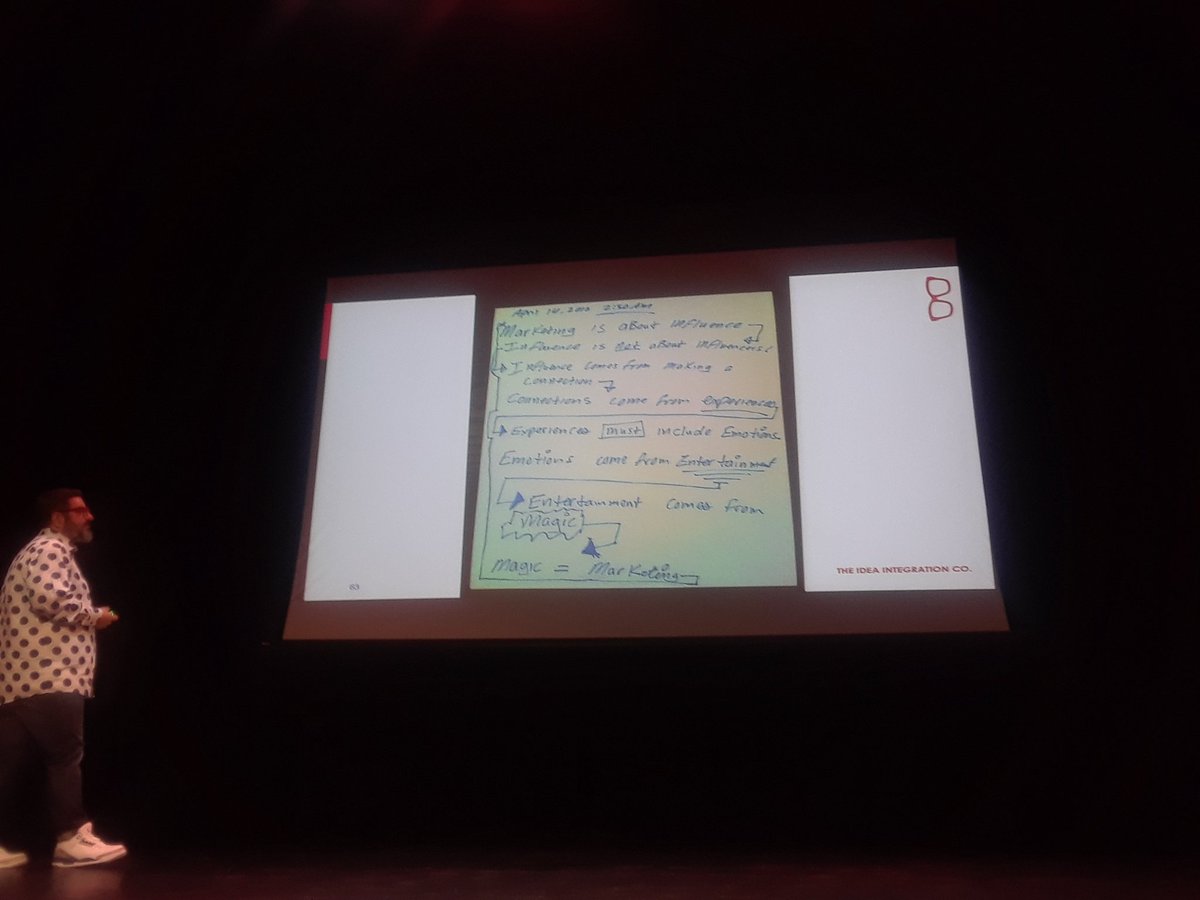 April 14, 2:30 AM
Marketing is about influence
Influence is not about influencers
Influence comes from making a
connection
Connections come from experiences
Experiences must include Emotions
Emotions come from Entertainment
Entertainment comes from
Magic
Magic = Marketing
63
8
THE IDEA INTEGRATION CO.